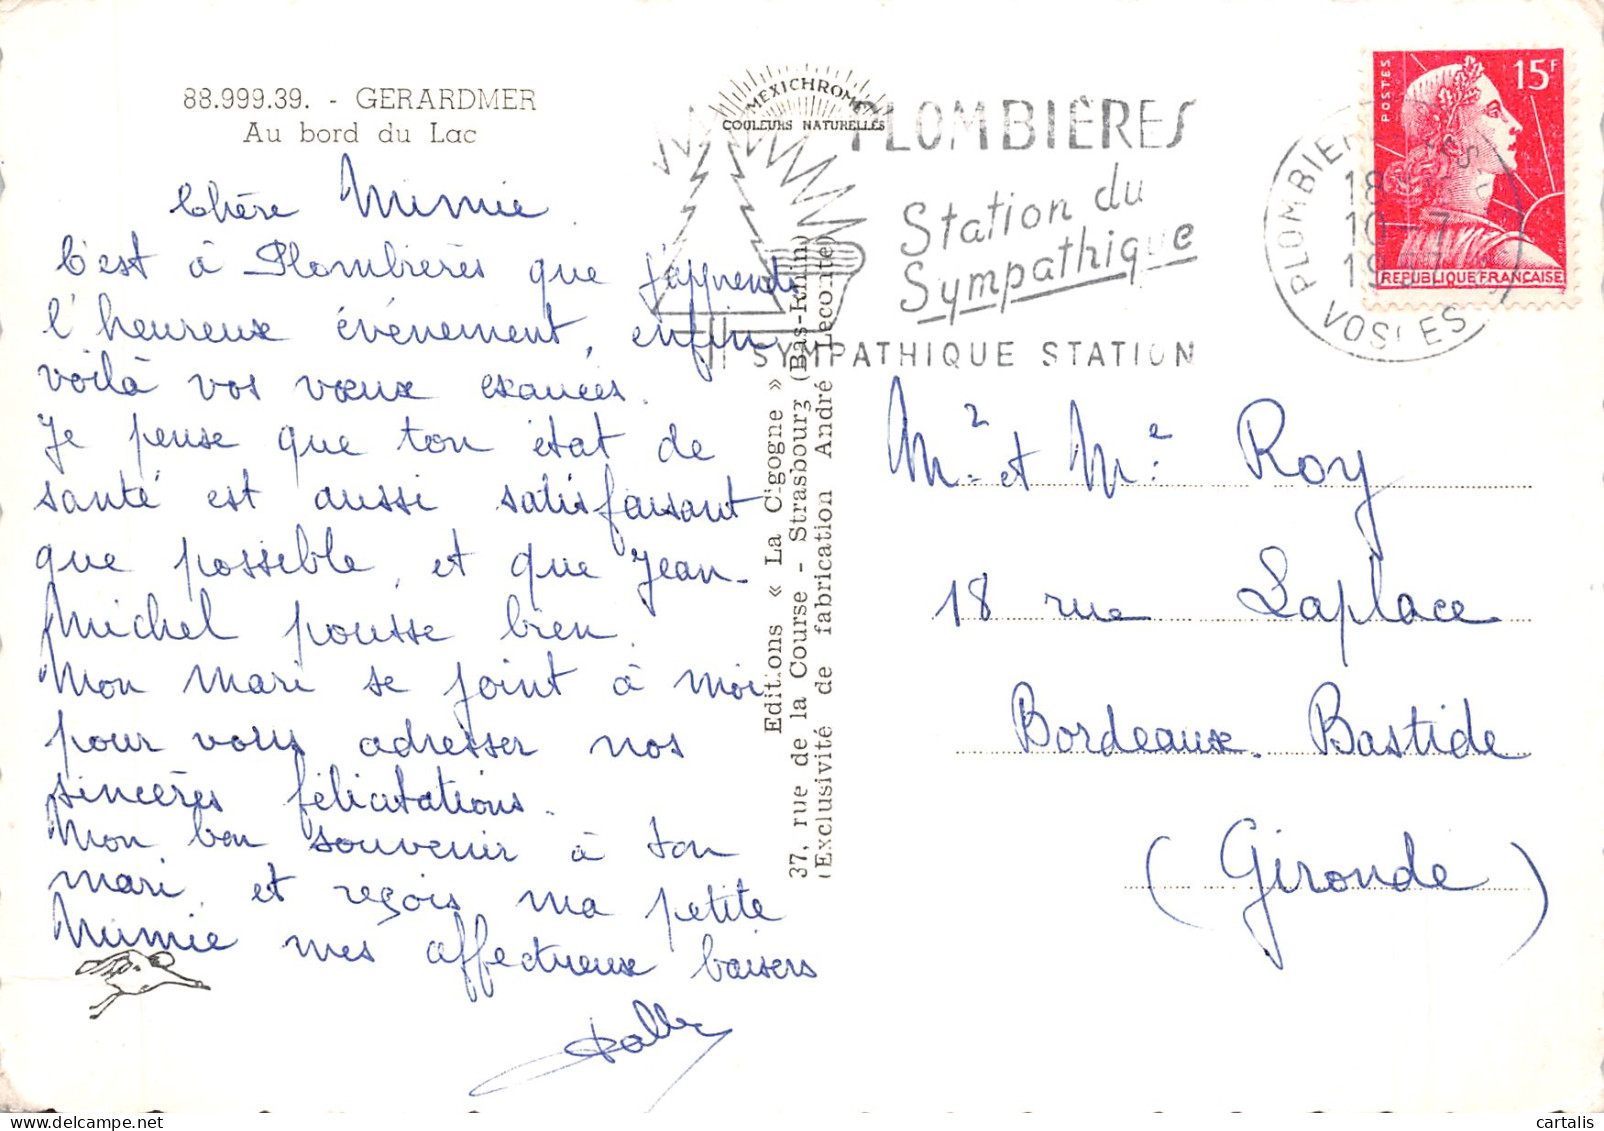 88.999.39. - GERARDMER
Au bord du Lac
Chère Mimie
C'est à Plombières que j'apprends
l'heureux événement, enfin
voilà vos vœux exaucés.
Je pense que ton état de
santé est aussi satisfaisant
que possible, et que Jean-
Michel pousse bien.
Mon mari se joint à moi
pour vous adresser nos
sincères félicitations.
Mon bon souvenir à ton
mari, et reçois ma petite
Mimie mes affectueux baisers
MEXICHROME
COULEURS NATURELLES
Editions « La Cigogne »
37, rue de la Course - Strasbourg (Bas-Rhin)
(Exclusivité de fabrication André Leconte)
PLOMBIÈRES
Station du
Sympathique
SYMPATHIQUE STATION
PLOMBIERES
18
10-7
19
VOSGES
POSTES
15F
REPUBLIQUE FRANÇAISE
Mr et Me Roy
18 rue Laplace
Bordeaux. Bastide
(Gironde)
cartalis